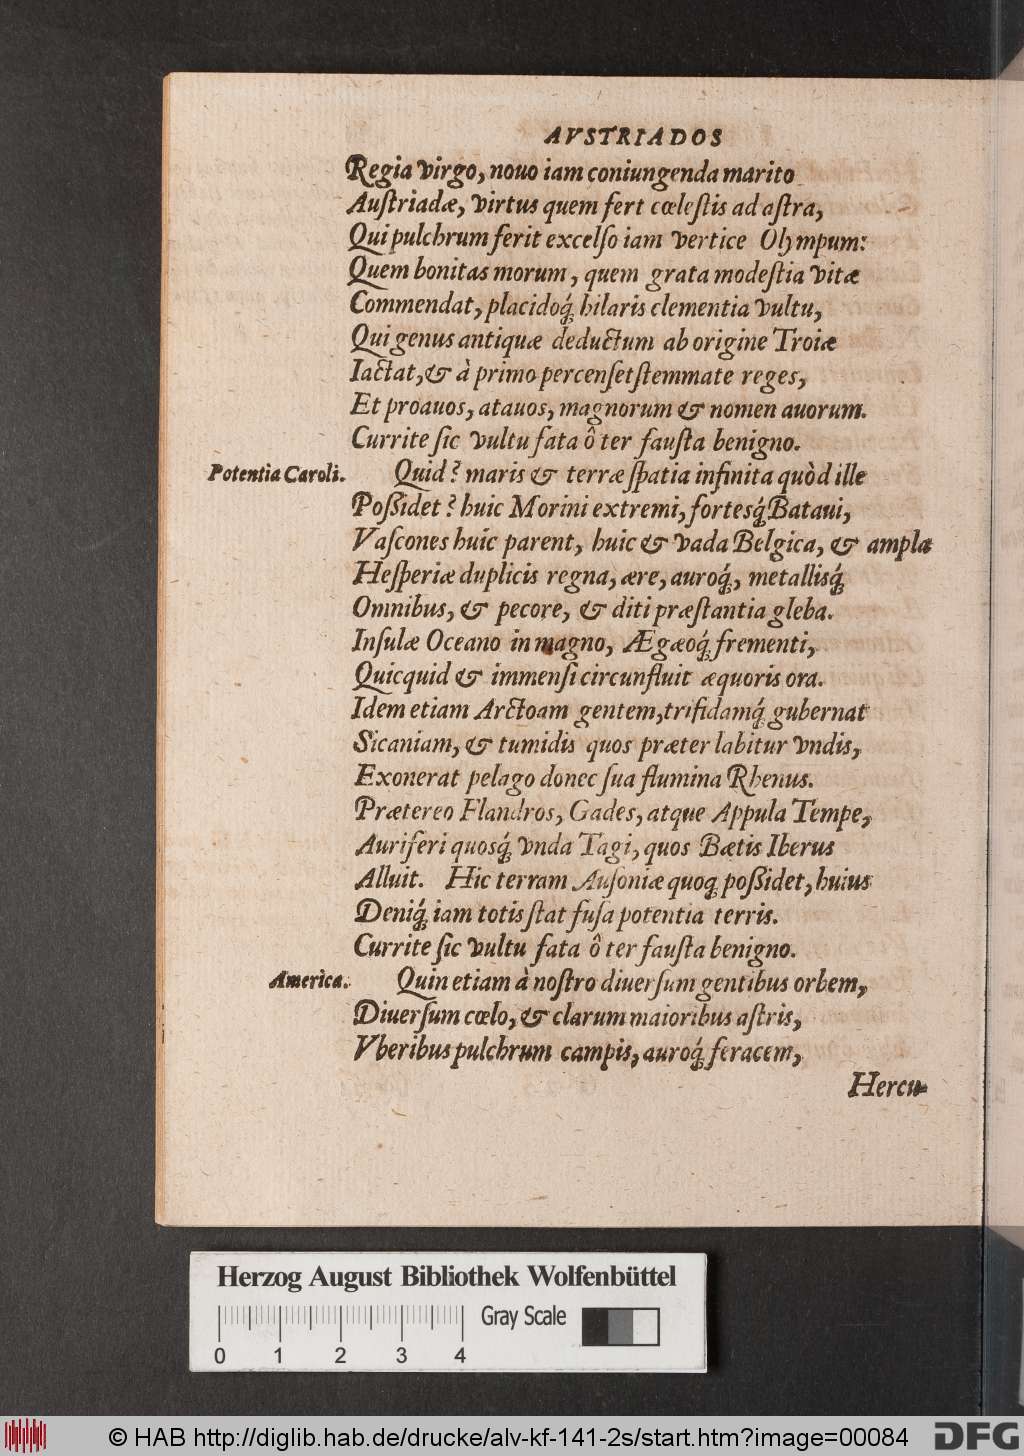 AVSTRIADOS
Regia virgo, nouo iam coniungenda marito
Auſtriadæ, virtus quem fert cœleſtis ad aſtra,
Qui pulchrum ferit excelſo iam vertice Olympum:
Quem bonitas morum, quem grata modeſtia vitæ
Commendat, placidoq́; hilaris clementia vultu,
Qui genus antiquæ deductum ab origine Troiæ
Iactat, & à primo percenſet ſtemmate reges,
Et proauos, atauos, magnorum & nomen auorum.
Currite ſic vultu fata ô ter fauſta benigno.
Potentia Caroli. Quid? maris & terræ ſpatia infinita quòd ille
Poßidet? huic Morini extremi, fortesq́; Bataui,
Vaſcones huic parent, huic & vada Belgica, & ampla
Heſperiæ duplicis regna, ære, auroq́;, metallisq́;
Omnibus, & pecore, & diti præſtantia gleba.
Inſulæ Oceano in magno, Ægæoq́; frementi,
Quicquid & immenſi circunfluit æquoris ora.
Idem etiam Arctoam gentem, trifidamq́; gubernat
Sicaniam, & tumidis quos præter labitur vndis,
Exonerat pelago donec ſua flumina Rhenus.
Prætereo Flandros, Gades, atque Appula Tempe,
Auriferi quosq́; vnda Tagi, quos Bætis Iberus
Alluit. Hic terram Auſoniæ quoq; poßidet, huius
Deniq́; iam totis ſtat fuſa potentia terris.
Currite ſic vultu fata ô ter fauſta benigno.
America. Quin etiam à noſtro diuerſum gentibus orbem,
Diuerſum cœlo, & clarum maioribus aſtris,
Vberibus pulchrum campis, auroq́; feracem,
Hercu-
Herzog August Bibliothek Wolfenbüttel
Gray Scale
0 1 2 3 4
© HAB http://diglib.hab.de/drucke/alv-kf-141-2s/start.htm?image=00084
DFG